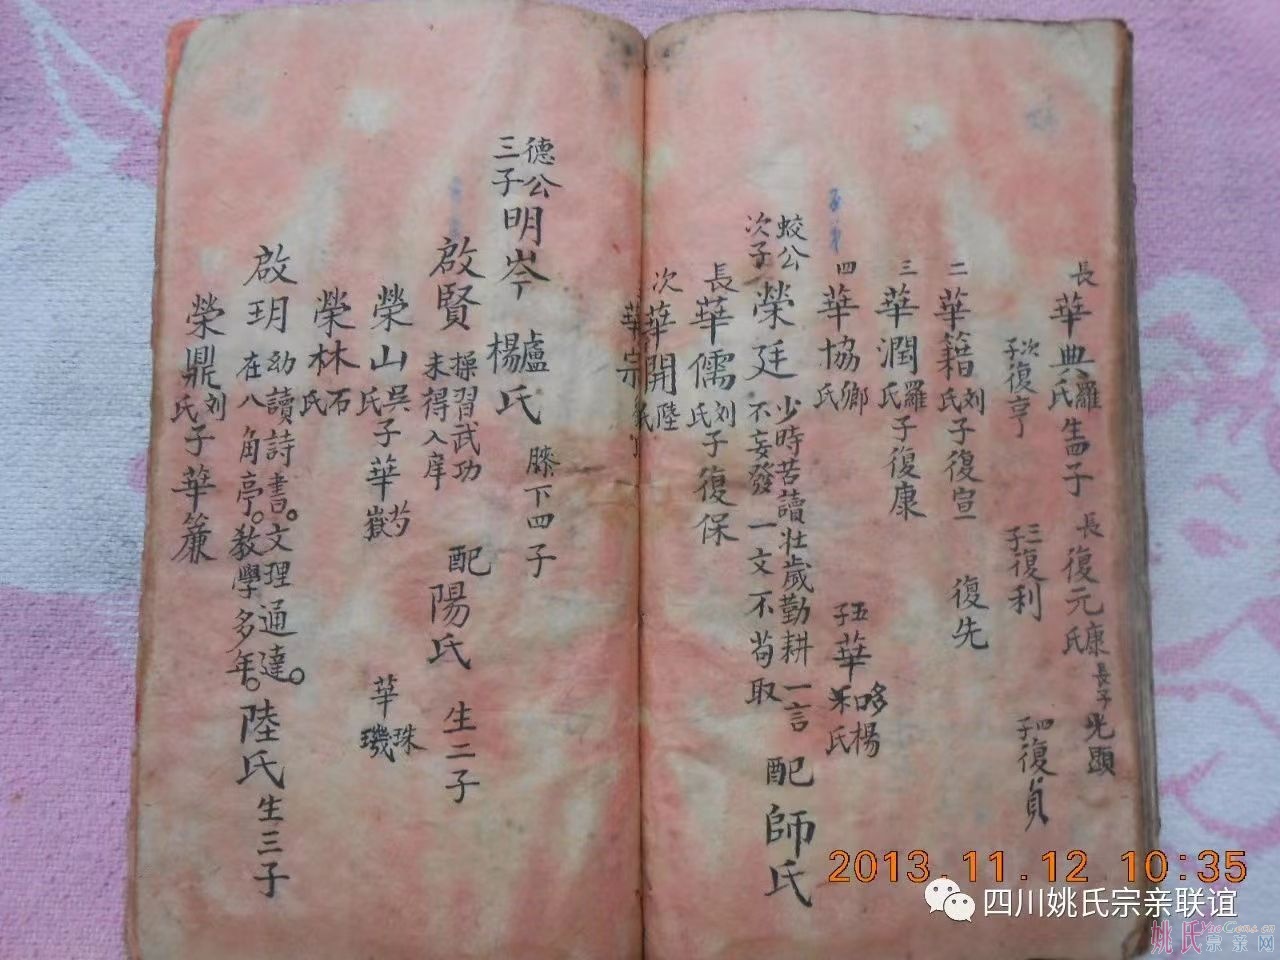 長華典羅氏生四子 長復元康氏長子光顕
次子復亨 三子復利 四子復貞
二華籍刘氏子復宣 復先
三華潤羅氏子復康
四華協鄉氏 五子華和楊氏
蛟公次子榮廷 少時苦讀壯歲勤耕一言不妄發一文不苟取 配師氏
長華儒刘氏子復保
次華開陸氏
華宗
德公三子明岑 盧楊氏 膝下四子
啟賢操習武功未得入庠 配陽氏 生二子
榮山吳氏子華芍嶽 華珠璣
榮林石氏
啟玥幼讀詩書。文理通達。在八角亭。教學多年。陸氏生三子
榮鼎刘氏子華簾
2013.11.12 10:35
四川姚氏宗亲联谊
姚氏宗亲网
YaoGens.cn